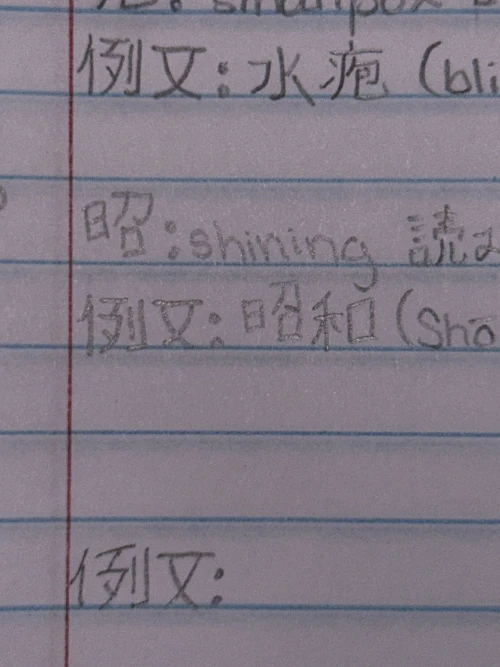 : smallpox
例文:水疱 (bli
昭:shining 読み
例文:昭和 (Shō
例文: